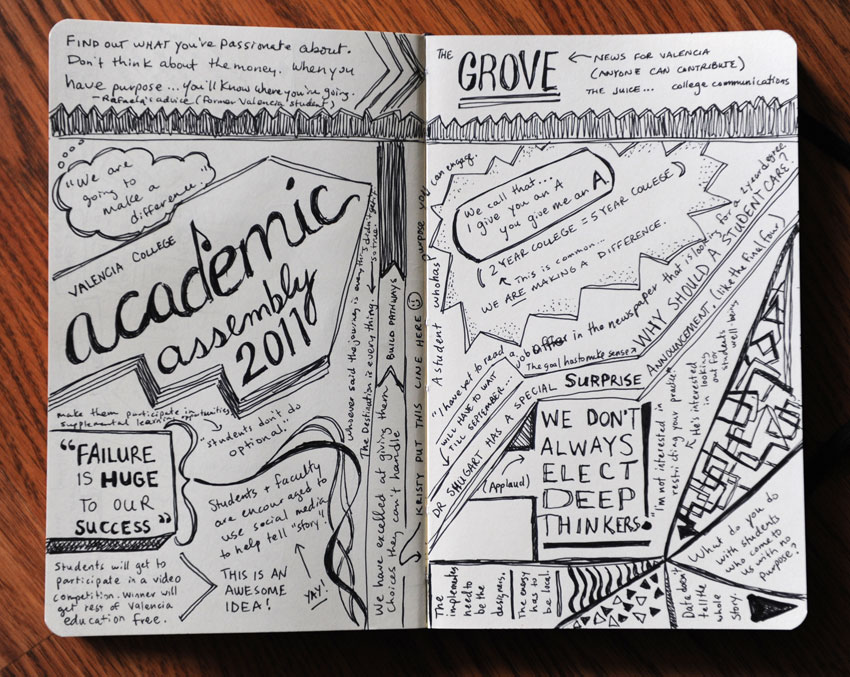 FIND OUT WHAT YOU'VE PASSIONATE ABOUT.
Don't think about the money. When you
have purpose... you'll know where you're going.
- Rafaela's advice (Former Valencia student)
"We are
going to
make a
difference."
VALENCIA COLLEGE
academic
assembly
2011
make them participate in
supplemental learning opportunities
"students don't do
optional"
"FAILURE
IS HUGE
TO OUR
SUCCESS"
Students + faculty
are encouraged to
use social media
to help tell "story".
THIS IS AN
AWESOME
IDEA!
YAY!
Students will get to
participate in a video
competition. Winner will
get rest of Valencia
education free.
whoever said the journey is everything didn't
so true.
The Destination is everything.
BUILD PATHWAYS
We have excelled at giving them
choices they can't handle
KRISTY PUT THIS LINE HERE
THE
GROVE
NEWS FOR VALENCIA
(ANYONE CAN CONTRIBUTE)
THE JUICE... college communications
A student who has purpose will
can engage.
We call that...
I give you an A
you give me an A
(2 YEAR COLLEGE = 5 YEAR COLLEGE)
This is common...
WE ARE MAKING A DIFFERENCE.
"I have yet to read a job offer in the newspaper that is looking for a 2 year degree
The goal has to make sense
WHY SHOULD A STUDENT CARE?
WILL HAVE TO WAIT
TILL SEPTEMBER...
DR SHUGART HAS A SPECIAL SURPRISE ANNOUNCEMENT. (like the final four)
(Applaud)
WE DON'T
ALWAYS
ELECT
DEEP
THINKERS!
"I'm not interested in
restricting your practice"
He's interested
in looking
out for
students
well-being
What do you do
with students
who come to
us with no
purpose?
The
implementes
need to
be the
designers.
The energy
has to
be local.
Data doesn't
tell the
whole
story.